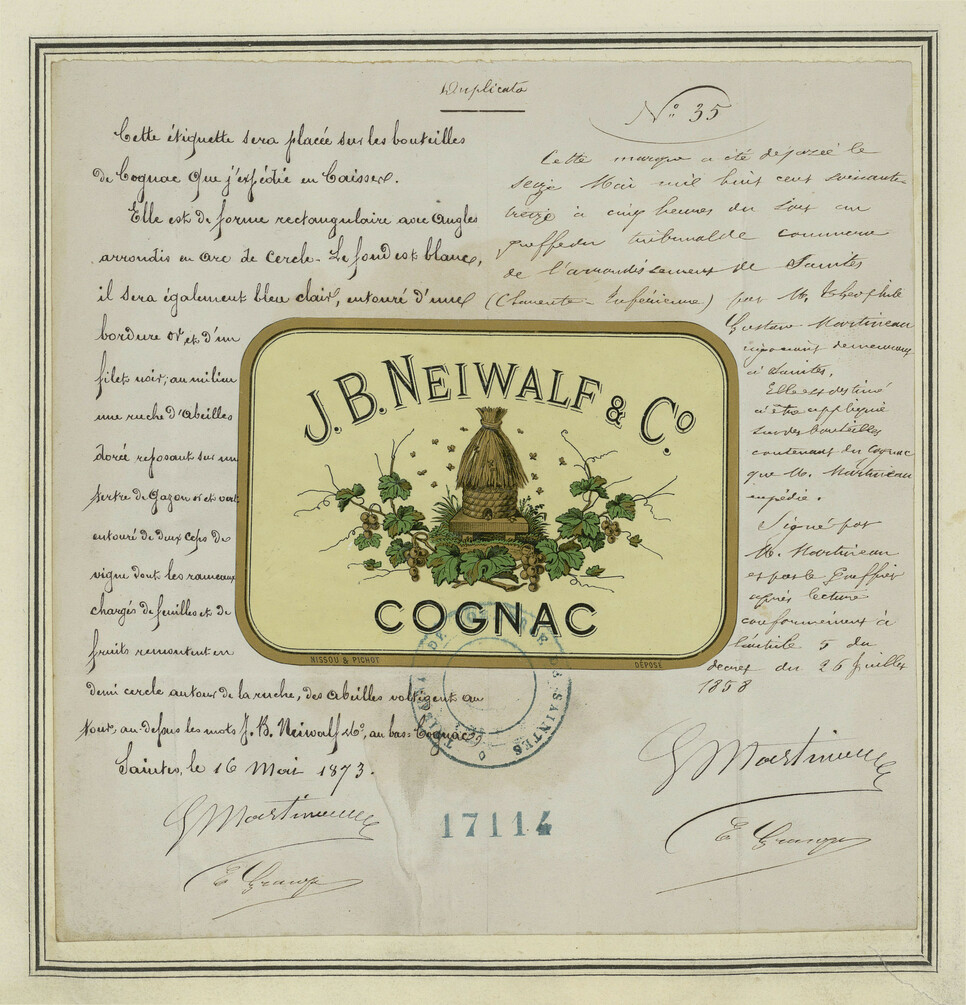 Duplicata
Cette étiquette sera placée sur les bouteilles
de Cognac que j'expédie en Caisses.
Elle est de forme rectangulaire avec Angles
arrondis en Arc de Cercle. Le fond est blanc,
il sera également bleu clair, entouré d'une
bordure or, et d'un
filet noir; au milieu
une ruche d'Abeilles
dorée reposant sur un
tertre de Gazon or et vert
entouré de deux ceps de
vigne dont les rameaux
chargés de feuilles et de
fruits remontent en
demi cercle autour de la ruche, des abeilles voltigent au
tour, au-dessus les mots J. B. Neiwalf & Co, au bas: Cognac,
Saintes, le 16 Mai 1873.
G Martineau
E Grange
No 35
Cette marque a été déposée le
seize Mai mil huit cent soixante
treize à cinq heures du soir au
greffe du tribunal de commerce
de l'arrondissement de Saintes
(Charente-Inférieure) par M. Théophile
Gustave Martineau
négociant demeurant
à Saintes.
Elle est destiné
à être appliqué
sur des bouteilles
contenant du Cognac
que M. Martineau
expédie.
Signé par
M. Martineau
et par le Greffier
après lecture
conformément à
l'article 5 du
décret du 26 Juillet
1858
G Martineau
E Grange
J. B. NEIWALF & Co.
COGNAC
NISSOU & PICHOT
DÉPOSÉ
SAINTES
17114